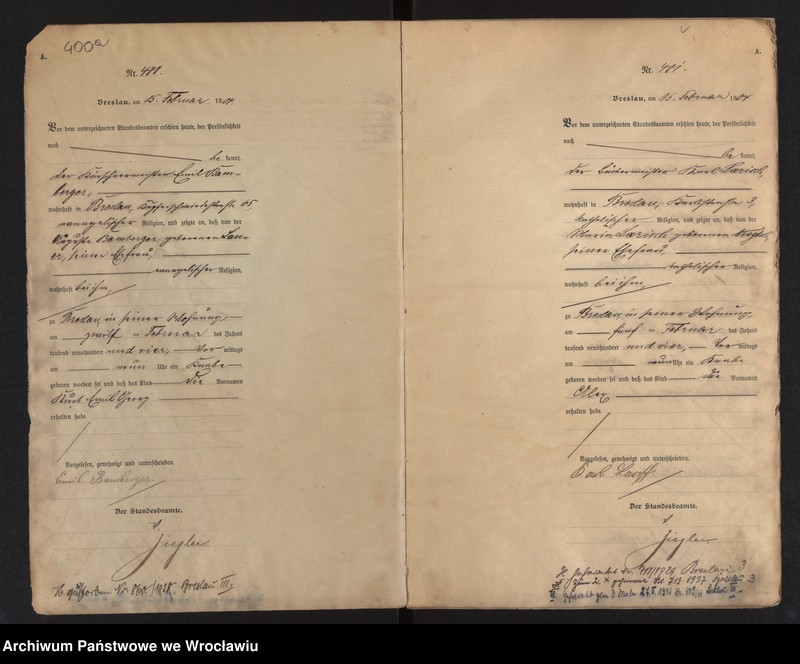 400a
A.
Nr. 400.
Breslau, am 15. Februar 1904.
Vor dem unterzeichneten Standesbeamten erschien heute, der Persönlichkeit
nach
be kannt,
der Emil Bam-
berger,
wohnhaft in Breslau, Kupferschmiedestraße 65
evangelischer Religion, und zeigte an, daß von der
Auguste Bamberger geborenen
seiner Ehefrau,
evangelischer Religion,
wohnhaft bei ihm,
zu Breslau in seiner Wohnung,
am zwölf ten Februar des Jahres
tausend neunhundert und vier, Vor mittags
um neun Uhr ein Knabe
geboren worden sei und daß das Kind die Vornamen
Kurt Emil Georg
erhalten habe.
Vorgelesen, genehmigt und unterschrieben.
Emil Bamberger
Der Standesbeamte.
Ziegler
H. gestorben Nr. /1928. Breslau III.
A.
Nr. 401.
Breslau, am 15. Februar 1904
Vor dem unterzeichneten Standesbeamten erschien heute, der Persönlichkeit
nach
be kannt,
der Karl Larisch,
wohnhaft in Breslau, Karlstraße 3,
katholischer Religion, und zeigte an, daß von der
Maria Larisch geborenen
seiner Ehefrau,
katholischer Religion,
wohnhaft bei ihm,
zu Breslau in seiner Wohnung,
am fünf ten Februar des Jahres
tausend neunhundert und vier, Vor mittags
um neun Uhr ein Knabe
geboren worden sei und daß das Kind die Vornamen
Alex
erhalten habe.
Vorgelesen, genehmigt und unterschrieben.
Der Standesbeamte.
Ziegler
Breslau 3
1937
Archiwum Państwowe we Wrocławiu